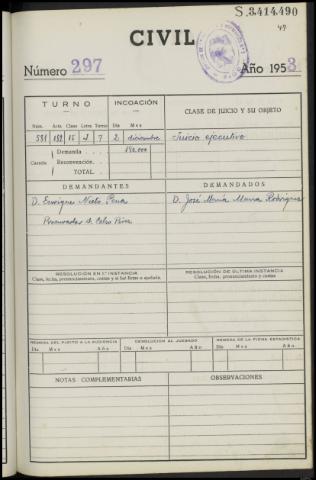 S.3.414.490
49
CIVIL
Número 297
Año 1953
TURNO
INCOACIÓN
CLASE DE JUICIO Y SU OBJETO
Núm. Acta Clase Letra Turno Día Mes
531 182 15 J 7 2 diciembre Juicio ejecutivo
Demanda
Cuantía Reconvención.
TOTAL.
DEMANDANTES
DEMANDADOS
D. Enrique Nieto Pena
D. José María Rodríguez
Procurador D. Celso
RESOLUCIÓN EN 1.ª INSTANCIA
Clase, fecha, pronunciamiento, costas y si fué firme o apelada.
RESOLUCIÓN DE ÚLTIMA INSTANCIA
Clase, fecha, pronunciamiento y costas
REMESA DEL PLEITO A LA AUDIENCIA
DEVOLUCIÓN AL JUZGADO
REMESA DE LA FICHA ESTADÍSTICA
Día Mes Año Día Mes Año Día Mes Año
NOTAS COMPLEMENTARIAS
OBSERVACIONES